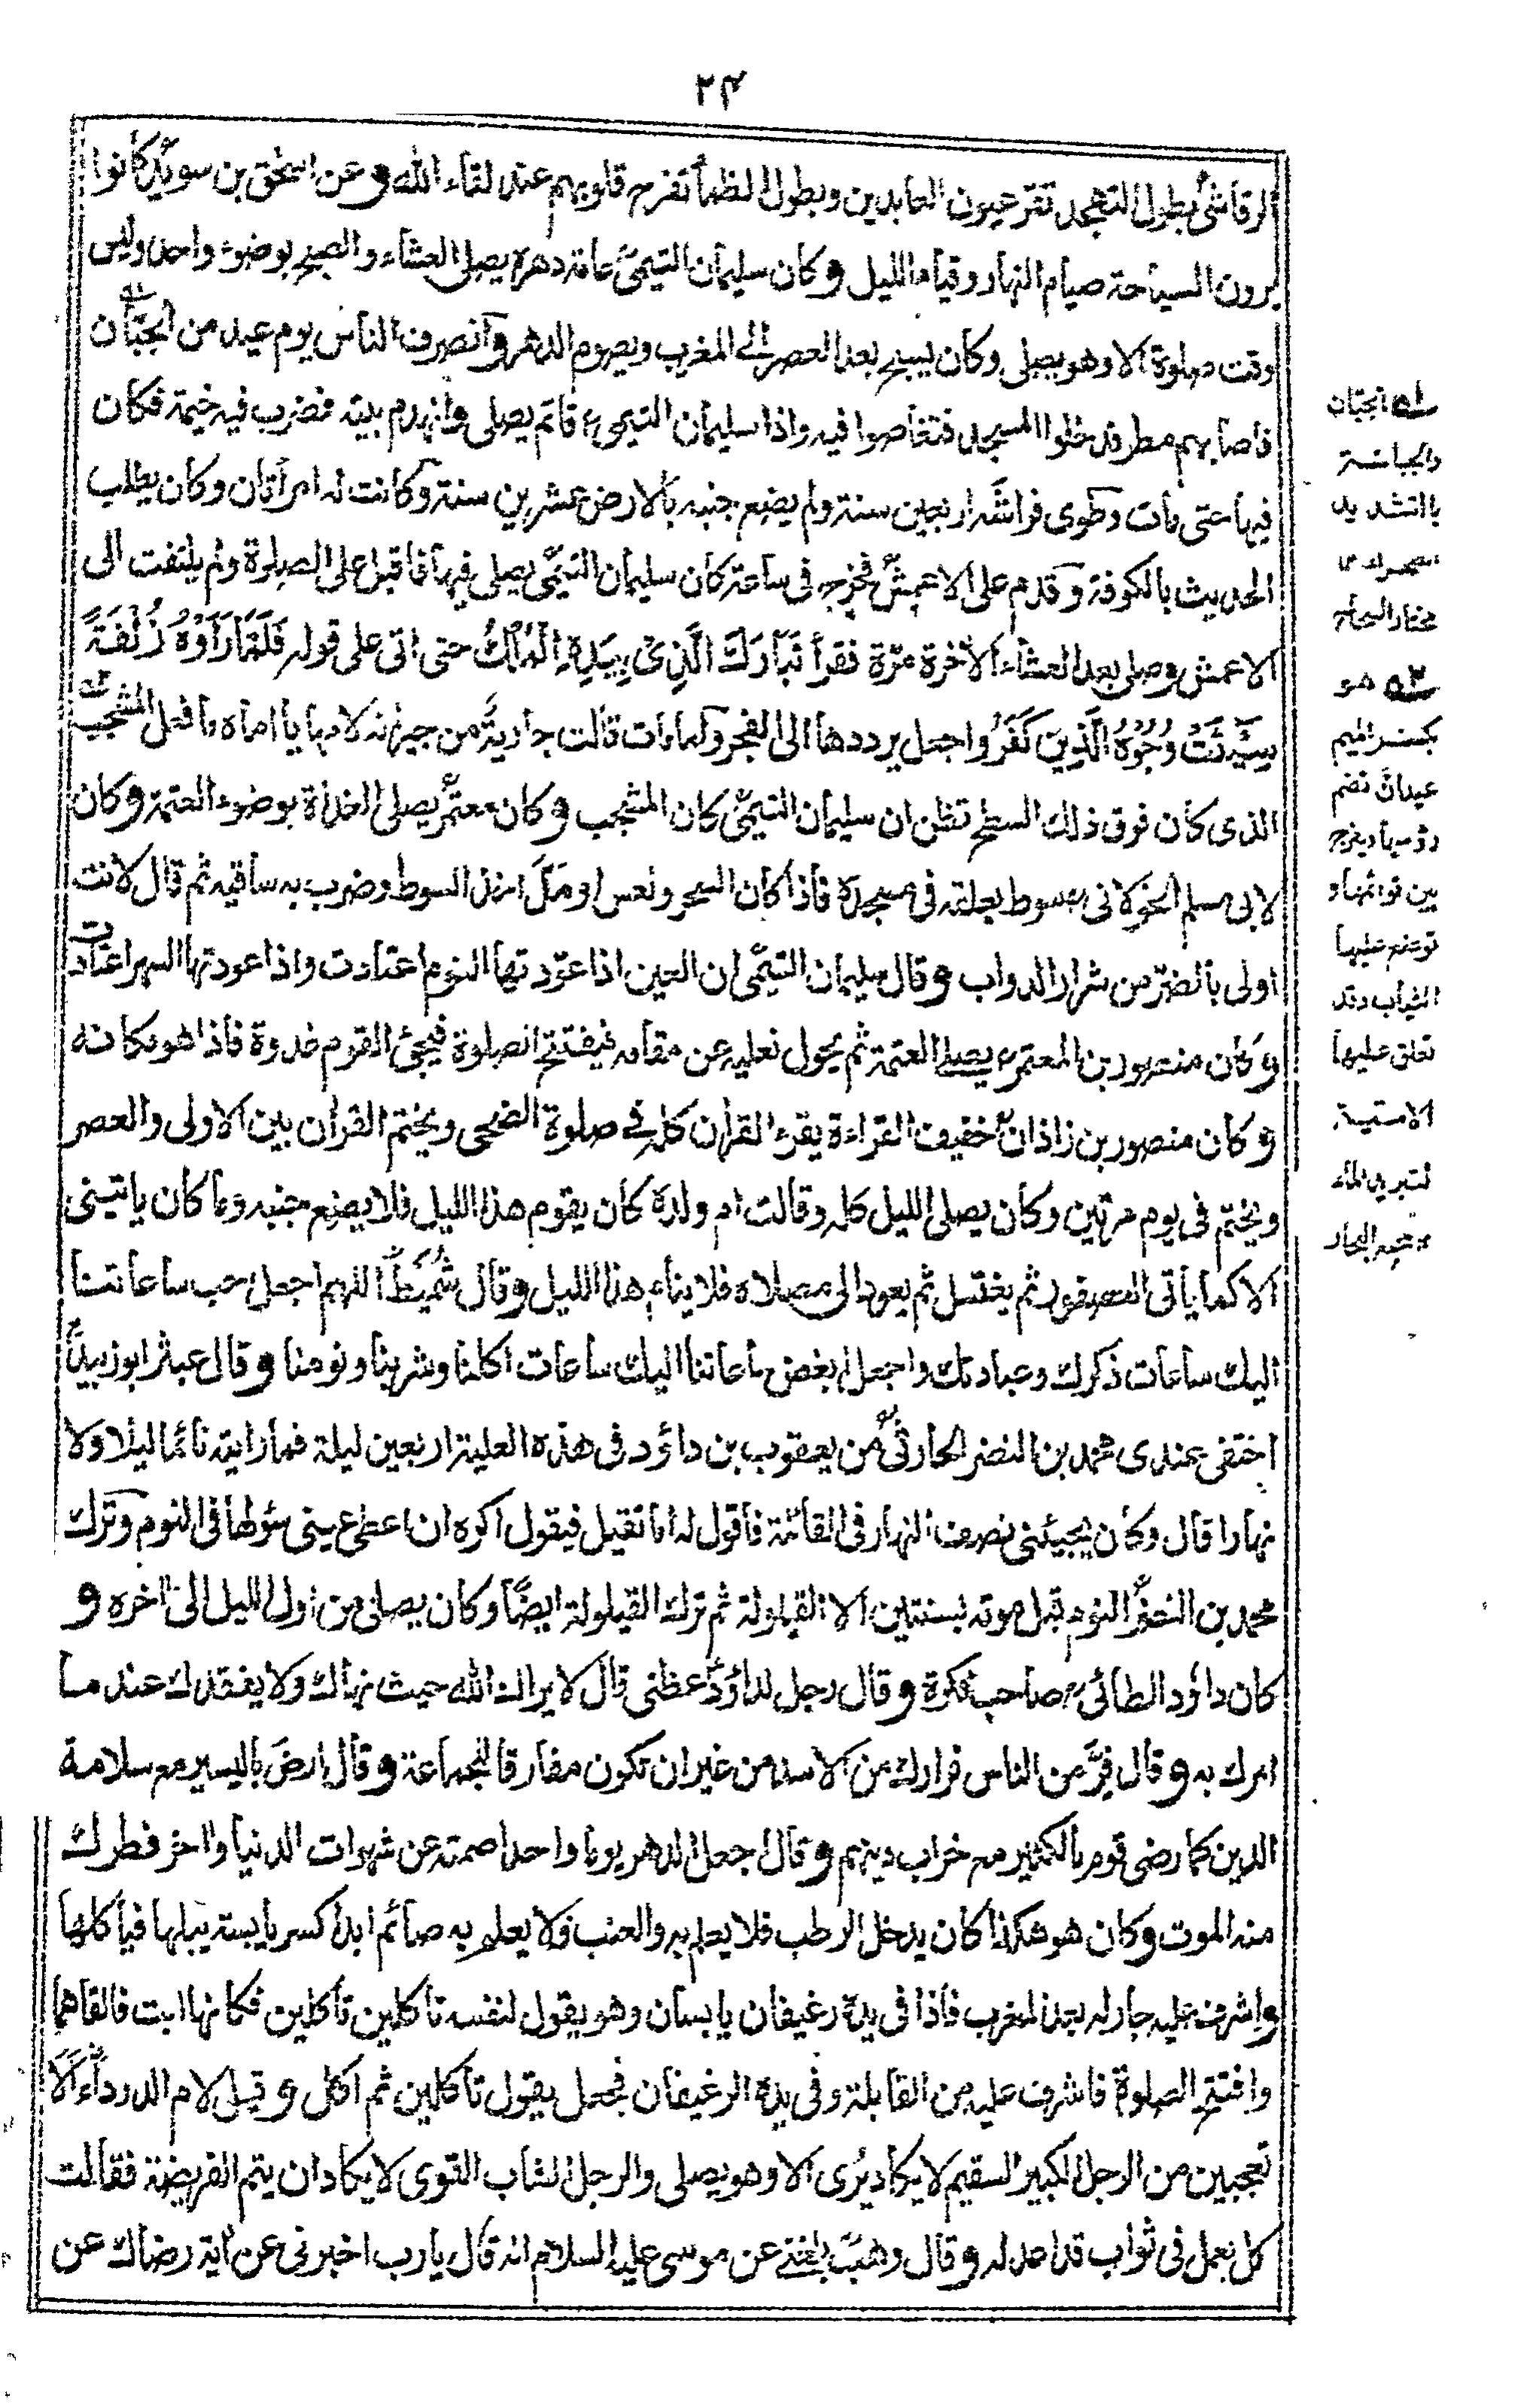 ۲۴
الرقاشیؒ بطول التهجد تقر عیون العابدین وبطول الظمأ تفرح قلوبهم عند لقاء الله وعن اسحٰق بن سویدؒ کانوا
یرون السیاحة صیام النهار وقیام اللیل وکان سلیمان التیمیؒ عامة دهره یصلی العشاء والصبح بوضوء واحد ولیس
وقت صلوة الا وهو یصلی وکان یسبح بعد العصر الی المغرب ویصوم الدهر وانصرف الناس یوم عید من الجبّان
فاصابهم مطر فدخلوا المسجد فتغاصوا فیه واذا سلیمان التیمیؒ قائم یصلی وانهدم بیته فضرب فیه خیمة فکان
فیها حتی مات وطوی فراشه اربعین سنة ولم یضع جنبه بالارض عشرین سنة وکانت له امرأتان وکان یطلب
الحدیث بالکوفة وقدم علی الاعمشؒ فخرج فی ساعة کان سلیمان التیمیؒ یصلی فیها فاقبل علی الصلوة ولم یلتفت الی
الاعمش وصلی بعد العشاء الآخرة مرّة فقرأ تَبَارَكَ الَّذِیْ بِیَدِهِ الْمُلْكُ حتی اتی علی قوله فَلَمَّا رَاَوْهُ زُلْفَةً
سِیْئَتْ وُجُوْهُ الَّذِیْنَ کَفَرُوا جعل یرددها الی الفجر ولما مات قالت جاریة من جیرانه لامها یا اماه ما فعل المشجب
الذی کان فوق ذلك السطح تظن ان سلیمان التیمیؒ کان المشجب وکان معتمرؒ یصلی الغداة بوضوء العتمة وکان
لابی مسلم الخولانیؒ سوط یعلقه فی مسجده فاذا کان السحر ونعس او مَلّ اخذ السوط وضرب به ساقیه ثم قال لانت
اولی بالضرب من شرار الدواب وقال سلیمان التیمیؒ ان العین اذا عوّدتها النوم اعتادت واذا عودتها السهر اعتادت
وکان منصور بن المعتمرؒ یصلی العتمة ثم یحول نعلیه عن مقامه فیفتتح الصلوة فیجئ القوم غدوة فاذا هو مکانه
وکان منصور بن زاذانؒ خفیف القراءة یقرء القرآن کله فی صلوة الضحی ویختم القرآن بین الاولی والعصر
ویختم فی یوم مرتین وکان یصلی اللیل کله وقالت ام ولده کان یقوم هذا اللیل فلا یضع جنبه وما کان یاتینی
الا کما یأتی العصفور ثم یغتسل ثم یعود الی مصلاه فلا ینام هذا اللیل وقال شُمَیطؒ اللهم اجعل احب ساعاتنا
الیك ساعات ذکرك وعبادتك واجعل ابغض ساعاتنا الیك ساعات اکلنا وشربنا ونومنا وقال عبثر ابو زبیدؒ
اختفی عندی محمد بن النضر الحارثیؒ من یعقوب بن داؤد فی هذه العلیة اربعین لیلة فما رایته نائما لیلا ولا
نهارا قال وکان یجیئنی نصف النهار فی القائلة فاقول له اما تقیل فیقول اکره ان اعطی عینی سؤلها فی النوم وترك
محمد بن النضرؒ النوم قبل موته بسنتین الا القیلولة ثم ترك القیلولة ایضًا وکان یصلی من اول اللیل الی آخره و
کان داؤد الطائیؒ صاحب فکرة وقال رجل لداؤدؒ عظنی قال لا یراك الله حیث نهاك ولا یفقدك عند ما
امرك به وقال فِرَّ من الناس فرارك من الاسد من غیر ان تکون مفارقا للجماعة وقال ارضَ بالیسیر مع سلامة
الدین کما رضی قوم بالکثیر مع خراب دینهم وقال اجعل الدهر یوما واحدا صمته عن شهوات الدنیا وآخر فطرك
منه الموت وکان هو هکذا کان یدخل الرطب فلا یعلم به والعنب ولا یعلم به صائم ابدا کسر یابسة یبلها فیأکلها
واشرف علیه جار له بعد المغرب فاذا فی یده رغیفان یابسان وهو یقول لنفسه تأکلین تأکلین فکانها ابت فالقاهما
وافتتح الصلوة فاشرف علیه من القابلة وفی یده الرغیفان فجعل یقول تأکلین ثم اکل وقیل لام الدرداءؓ الا
تعجبین من الرجل الکبیر السقیم لا یکاد یُری الا وهو یصلی والرجل الشاب القوی لا یکاد ان یتم الفریضة فقالت
کل یعمل فی ثواب قد اعد له وقال وهبؒ بلغنی عن موسی علیه السلام انه قال یا رب اخبرنی عن آیة رضاك عن
له الجبّان
والجبانة
بالتشدید
الصحراء ۱۲
مختار الصحاح
۲ه هو
بکسر المیم
عیدان تضم
رؤسها ویفرج
بین قوائمها و
توضع علیها
الثیاب وقد
تعلق علیها
الاسقیة
لتبرید الماء
۱۲ مجمع البحار